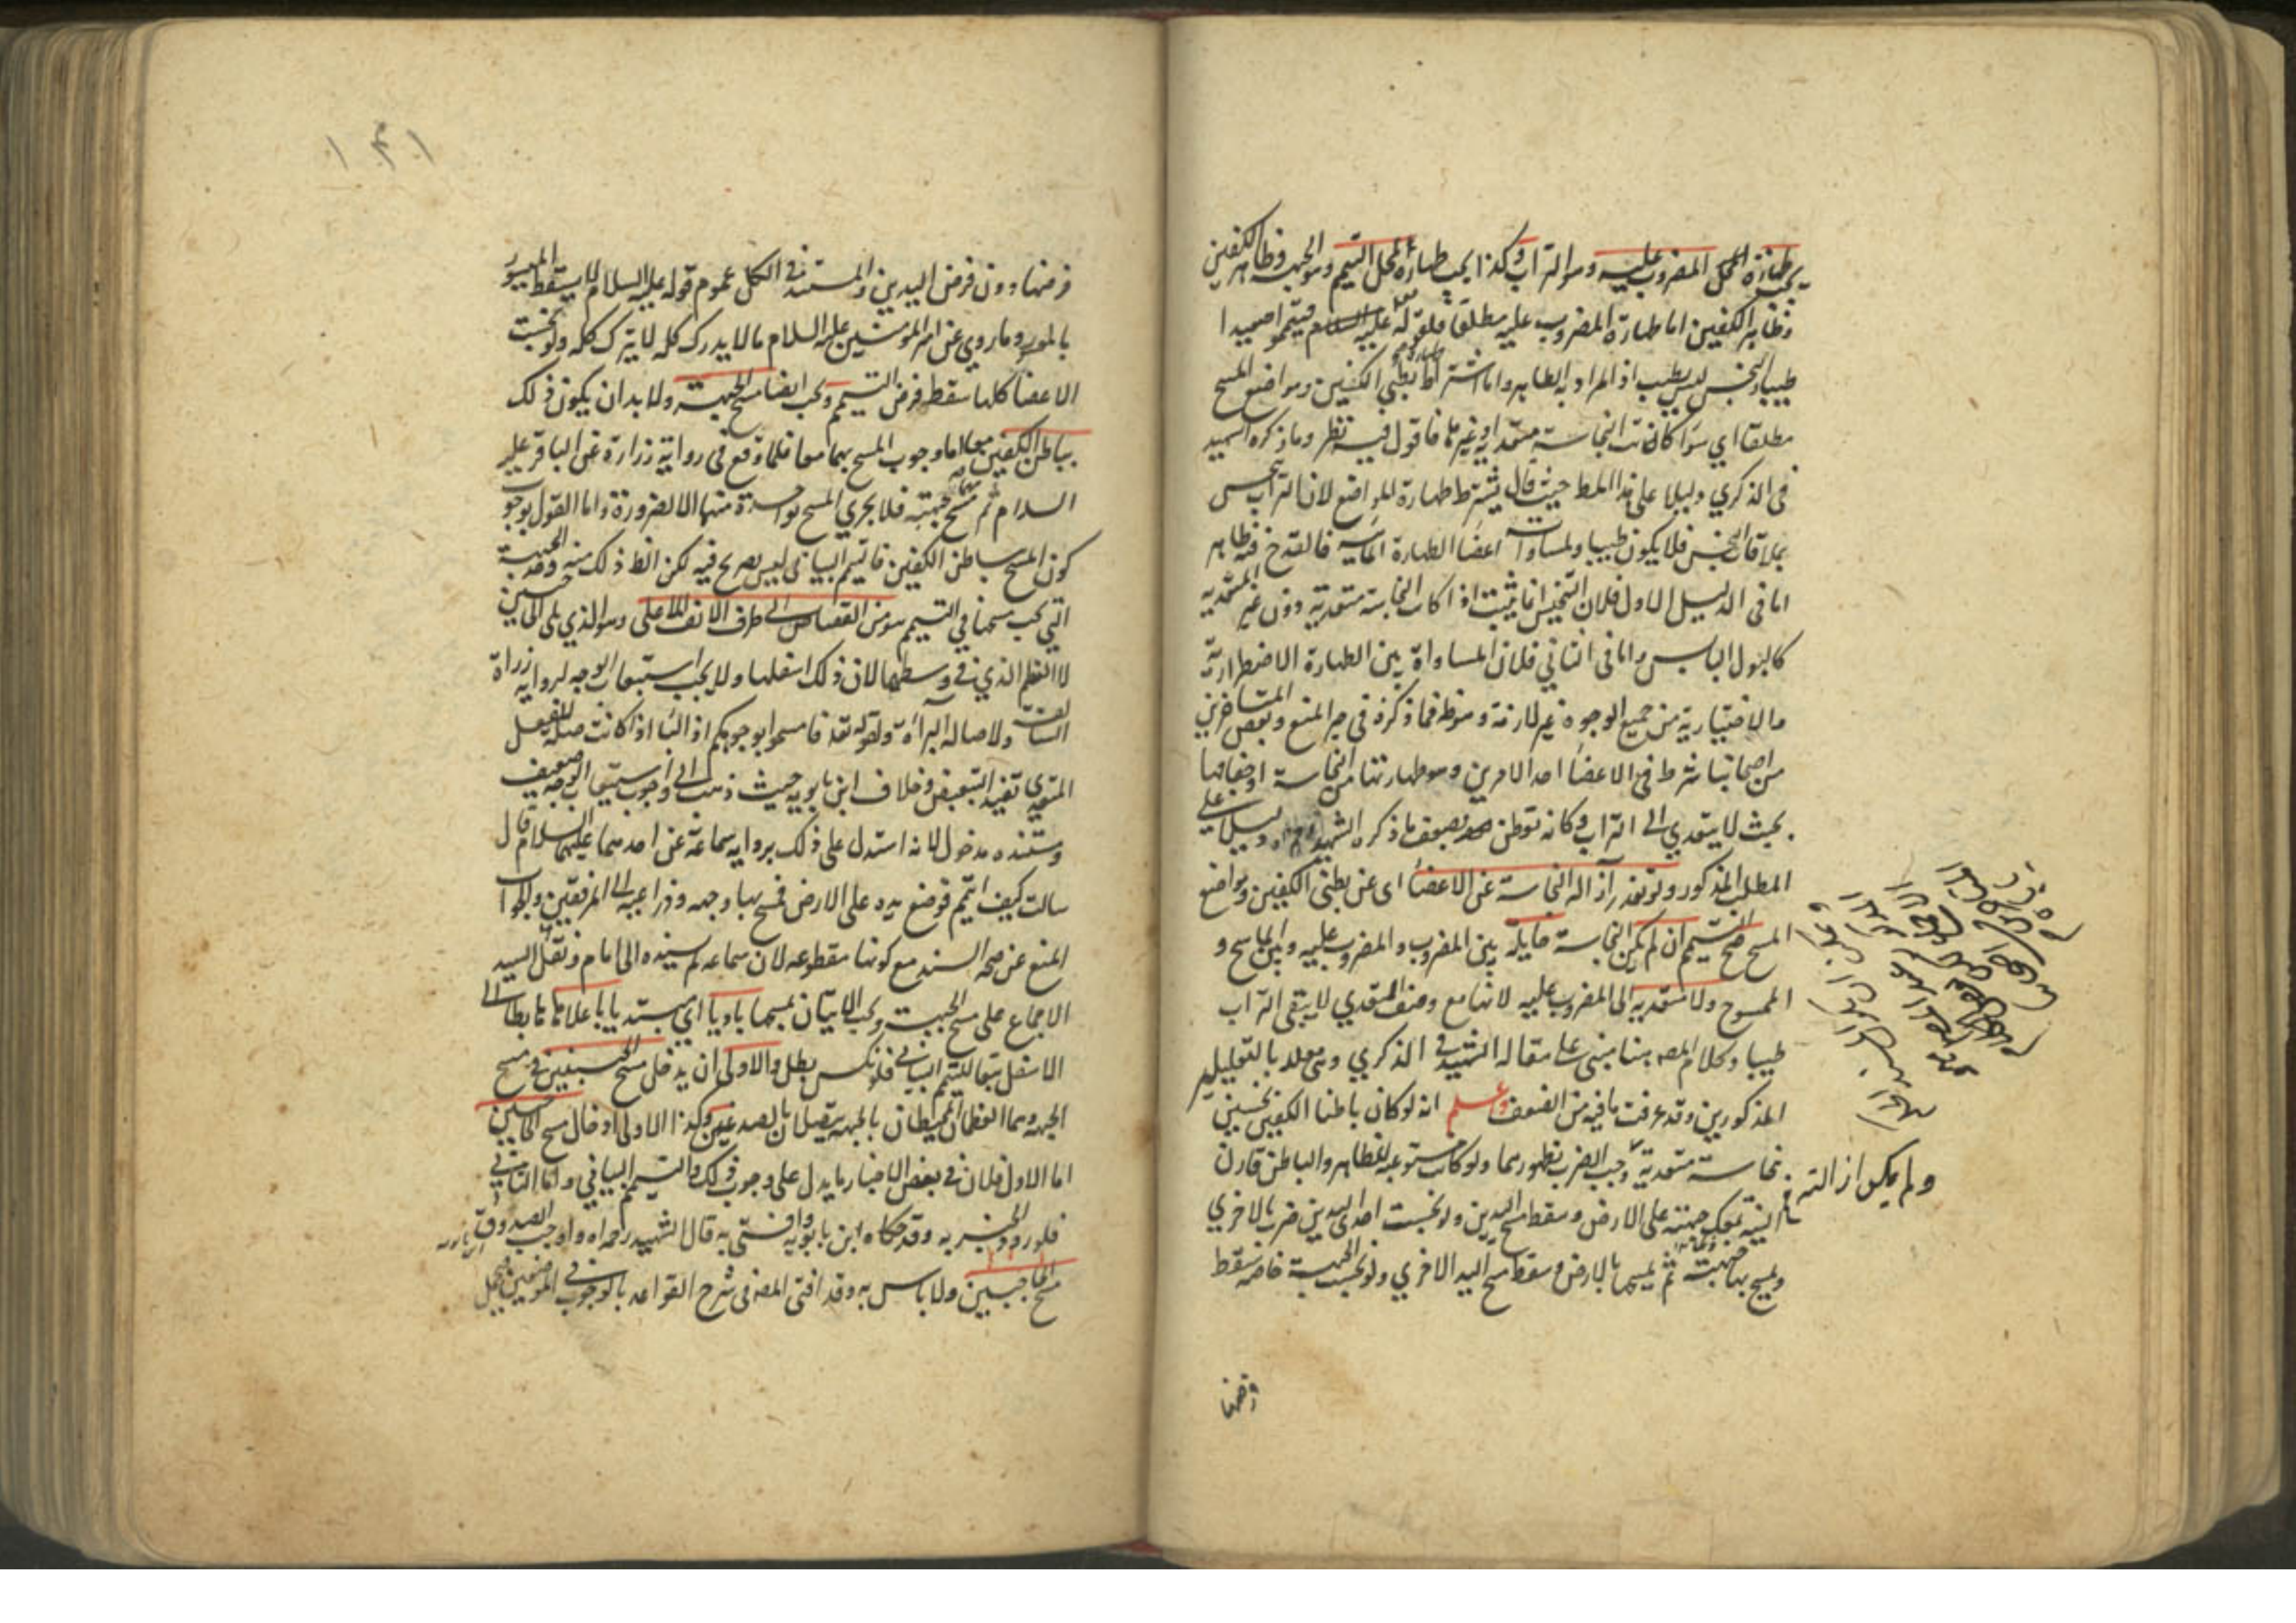 يجب طهارة المحل المضروب عليه وهو التراب وكذا يجب طهارة محل التيمم وهو الجبهة وظاهر الكفين
وظاهر الكفين اما طهارة المضروب عليه مطلقا فلقوله عليه السلام فتيمموا صعيدا
طيبا والنجس ليس بطيب اذ المراد به الطاهر واما اشتراط طهارة بطني الكفين ومواضع المسح
مطلقا اي سواء كانت النجاسة متعدية او غيرها فاقول فيه نظر وما ذكره الشهيد
في الذكرى دليلا على هذا حيث قال يشترط طهارة المواضع لان التراب ينجس
بملاقات النجس فلا يكون طيبا ولمساوات اعضاء الطهارة المائية فالقدح فيه ظاهر
اما في الدليل الاول فلان التنجيس انما يثبت اذا كان النجاسة متعدية دون غير المتعدية
كالبول اليابس واما في الثاني فلان المساواة بين الطهارة الاضطرارية
والاختيارية من جميع الوجوه غير لازمة فما ذكره في حيز المنع وبعض المتاخرين
من اصحابنا شرط في الاعضاء احد الامرين وهو طهارتها من النجاسة او جفافها
بحيث لا يتعدى الى التراب وكانه توطن بضعف ما ذكره الشهيد دليلا على
المطلب المذكور ولو تعذر ازالة النجاسة عن الاعضاء اى عن بطنى الكفين ومواضع
المسح صح التيمم ان لم يكن النجاسة حايلة بين المضروب والمضروب عليه وبين الماسح و
الممسوح ولا متعدية الى المضروب عليه لانها مع وصف التعدي لا يبقى التراب
طيبا وكلام المص هنا مبنى على مقالة الشهيد في الذكرى ومعلله بالتعليلين
المذكورين وقد عرفت ما فيه من الضعف واعلم انه لو كان باطنا الكفين نجسين
نجاسة متعدية وجب الضرب بظهورهما ولو كانت مستوعبة للظاهر والباطن قارن
النية تمعك جبهته على الارض وسقط مسح اليدين ولو نجست احدى اليدين ضرب بالاخرى
ويمسح بها جبهته ثم يمسحها بالارض وسقط مسح اليد الاخرى ولو نجست الجبهة خاصة سقط
ولم يمكن ازالته
فرضها
فرضها دون فرض اليدين والمستند في الكل عموم قوله عليه السلام لا يسقط الميسور
بالمعسور وما روي عن امير المؤمنين عليه السلام ما لا يدرك كله لا يترك كله ولو نجست
الاعضا كلها سقط فرض التيمم ويجب ايضا مسح الجبهة ولا بد ان يكون ذلك
بباطن الكفين معا اما وجوب المسح بهما معا فلما وقع في رواية زرارة عن الباقر عليه
السلام ثم مسح بهما جبهته فلا يجزي المسح بواحدة منهما الا لضرورة واما القول بوجوب
كون المسح بباطن الكفين فالتيمم البياني ليس بصريح فيه لكن الظ ذلك منه وحد الجبهة
التي يجب مسحها في التيمم هو من القصاص الى طرف الانف الاعلى وهو الذي يلى الجبين
لا العظم الذي في وسطها لان ذلك اسفلها ولا يجب استيعاب الوجه لرواية زرارة
السالفة ولاصالة البراءة ولقوله تعه فامسحوا بوجوهكم اذ الباء اذا كانت صلة للفعل
المتعدي تفيد التبعيض وخلاف ابن بابويه حيث ذهب الى وجوب استيعاب الوجه ضعيف
ومستنده مدخول لانه استدل على ذلك برواية سماعة عن احدهما عليهما السلام قال
سالت كيف التيمم فوضع يده على الارض فمسح بها وجهه وذراعيه الى المرفقين والجواب
المنع عن صحة السند مع كونها مقطوعة لان سماعة لم يسنده الى امام ونقل السيد
الاجماع على مسح الجبهة ويجب الاتيان بمسحها باديا اي مبتديا باعلاها الى
الاسفل تبعا للتيمم البياني فلو نكس بطل والاولى ان يدخل مسح الجبينين في مسح
الجبهة وهما العظمان المحيطان بالجبهة يتصلان بالصدغين وكذا الاولى ادخال مسح الحاجبين
اما الاول فلان في بعض الاخبار ما يدل على وجوب ذلك والتيمم البياني واما الثاني
فلورود الخبر به وقد حكاه ابن بابويه وافتى به قال الشهيد رحمه اه واوجب الصدوق
مسح الحاجبين ولا باس به وقد افتى المص في شرح القواعد بالوجوب في الموضعين